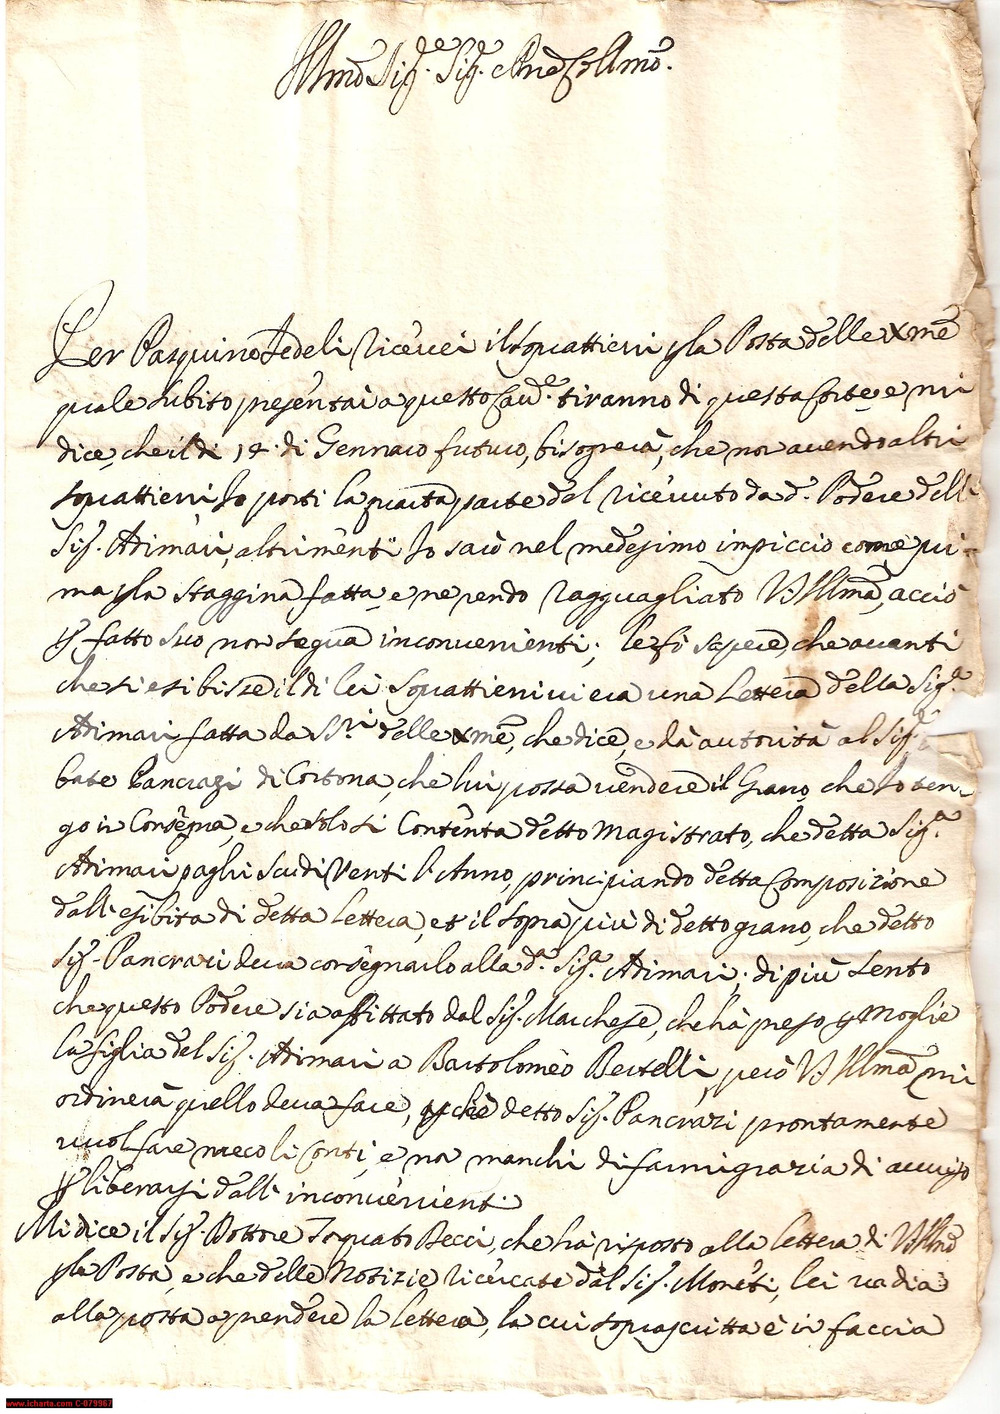 Illmo Sig.re Sig.re e Pne Col.mo
Per Pasquino Fedeli riceuei il Soquattieri p la Posta delle xme
quale subito presentai a questo Cau.e tiranno di questa Corte e mi
dice, che il di 14. di Gennaio futuro, bisognerà, che non auendo altri
soquattieri Io porti la quarta parte del riceuuto da d.o Podere dell
Sig. Adimari, altrimenti Io sarò nel medesimo impiccio come pri-
ma p la staggina fatta, e ne rendo ragguagliato VS Illma, acciò
p fatto suo non segua inconuenienti; le fo sapere, che auanti
che si esibisse il di lei soquattieri ui era una Lettera della Sig.ra
Adimari fatta da SS.ri delle xme, che dice, e dà autorità al Sig.
bate Pancrazi di Cortona, che lui possa uendere il Grano, che Io ten-
go in Consegna, e che solo si Contenta detto Magistrato, che detta Sig.ra
Adimari paghi scudi Venti l'Anno, principiando detta Composizione
dall'esibita di detta lettera, et il sopra più di detto grano, che detto
Sig. Pancrazi deua consegnarlo alla d.a Sig.ra Adimari; di più sento
che questo Podere sia affittato dal Sig. Marchese, che hà preso p Moglie
la figlia del Sig. Adimari a Bartolomeo Bertelli, però VS Illma mi
ordinerà quello deua fare, p che detto Sig. Pancrazi prontamente
uuol fare meco li Conti, e non manchi di farmi grazia di auuiso
p liberarsi dall'inconuenienti
Mi dice il Sig. Dottore Torquato Becci, che hà risposto alla lettera di VS Illma
p la Posta, e che delle Notizie ricercate dal Sig. Moneti, lei uadia
alla posta a prendere la lettera, la cui soprascritta è in faccia
www.icharta.com C-079967